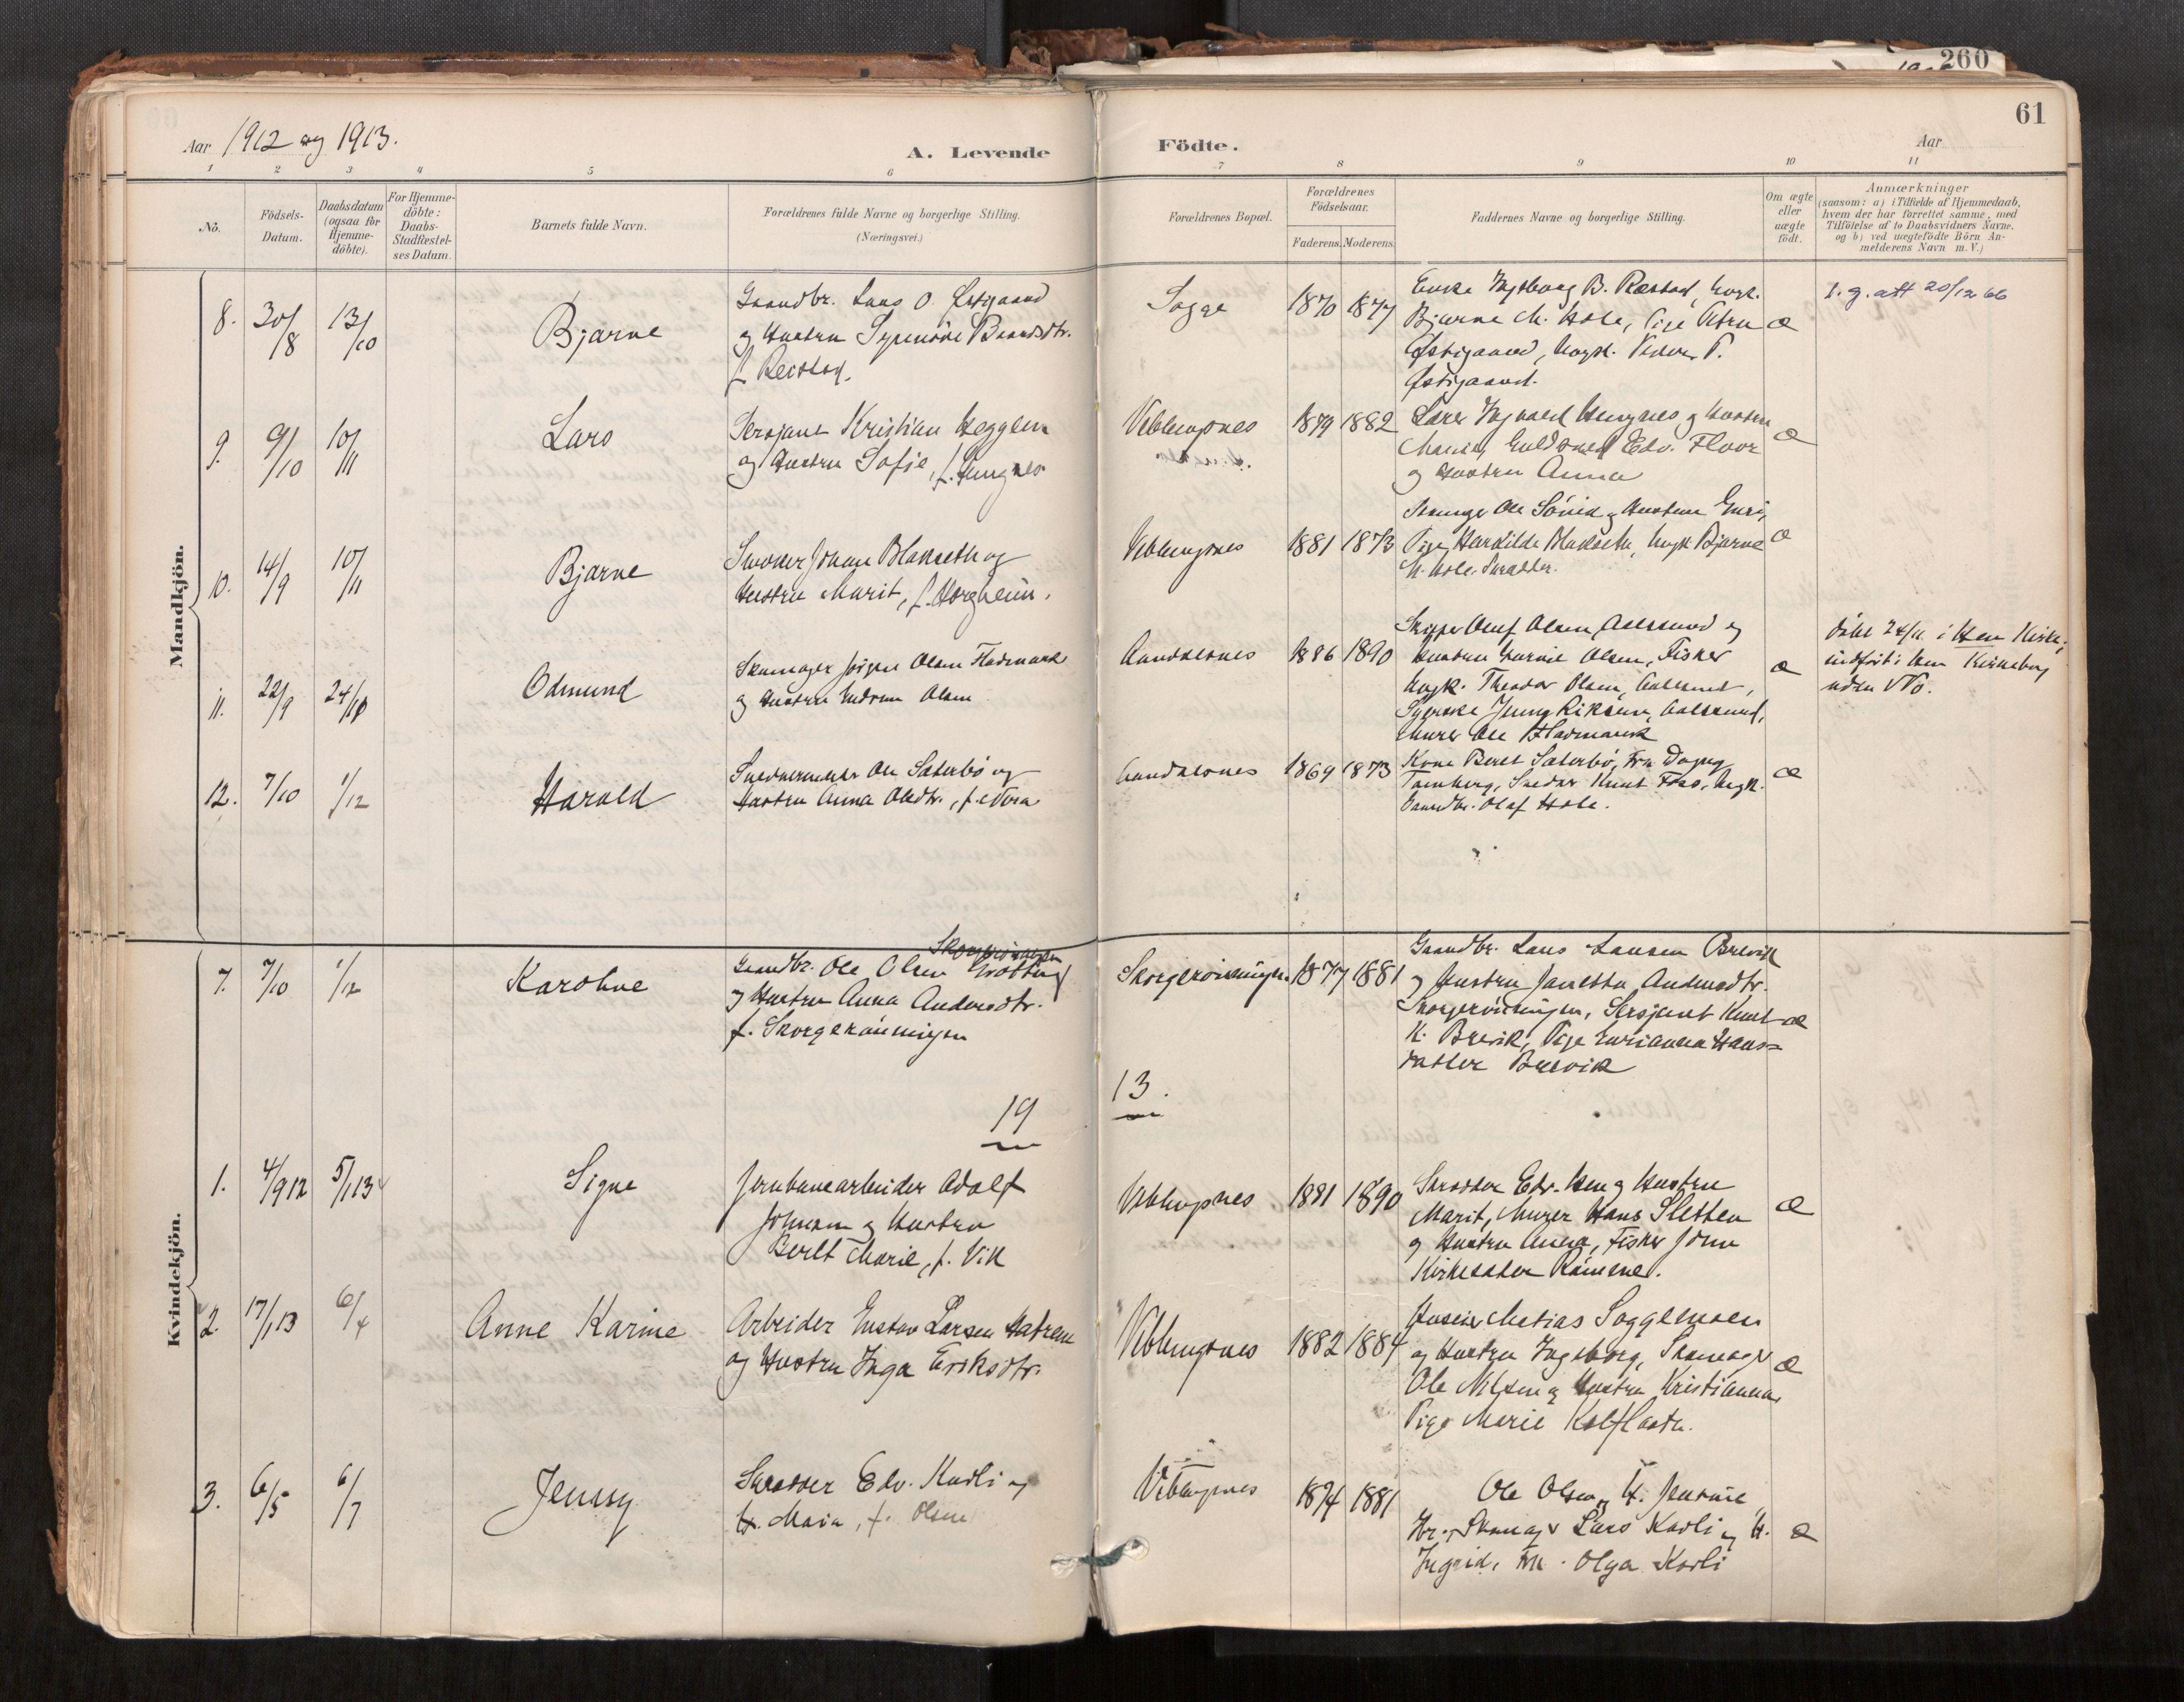 260
61
Aar 1912 og 1913.
A. Levende
Födte.
Aar
1 2 3 4 5 6 7 8 9 10 11
No.
Födsels-
Datum.
Daabsdatum
(ogsaa for
Hjemme-
döbte).
For Hjemme-
döbte:
Daabs-
Stadfæstel-
ses Datum.
Barnets fulde Navn.
Forældrenes fulde Navne og borgerlige Stilling.
(Næringsvei.)
Forældrenes Bopæl.
Forældrenes
Födselsaar.
Faderens. Moderens.
Faddernes Navne og borgerlige Stilling.
Om ægte
eller
uægte
födt.
Anmærkninger
(saasom: a) i Tilfælde af Hjemmedaab,
hvem der har forrettet samme, med
Tilföielse af to Daabsvidners Navne,
og b) ved uægtefödte Börn An-
melderens Navn m. V.)
Mandkjön.
8. 30/8 13/10
Bjarne
Gaardbr. Lars O. Östigaard
og Hustru
Sogge
1870 1877
Bjarne M. Hole, Pige
Östigaard, Ungk. Peder P.
Östigaard.
æ
1. g. att 20/12 66
9. 9/10 10/11
Lars
Sersjant Kristian Heggem
og Hustru Sofie, f.
Veblungsnes
1879 1882
Maria, Guldsmed Edv. Floor
og Hustru Anna
æ
10. 14/9 10/11
Bjarne
Snedker Johan Blakseth og
Hustru Marit, f. Horgheim.
Veblungsnes
1881 1873
Ole og Hustru Guri,
Pige Blakseth, Ungk. Bjarne
M. Hole.
æ
11. 22/9 24/11
Odmund
Skomager Jörgen Olsen Fladmark
og Hustru Gudrun Olsen
Aandalsnes
1886 1890
Skipper Oluf Olsen, Aalesund og
Hustru Olsen, Fisker
Ungk. Theodor Olsen, Aalesund,
Aalesund,
Murer Ole Fladmark
æ
döbt 24/11 i Hen Kirke,
indfört i Hen Kirkebog
uden No.
12. 7/10 1/12
Harald
Ole Sæterbö og
Hustru Anna Olsdtr., f.
Aandalsnes
1869 1873
Kone Beret Sæterbö, Fru Dagny
Knut Foss, Ungk.
Gaardbr. Olaf Hole.
æ
Kvindekjön.
7. 7/10 1/12
Karoline
Gaardbr. Ole Olsen
og Hustru Anna Andersdtr.
f. Skorgeröinningen
Skorgeröinningen
1877 1881
Gaardbr. Lars Larsen Brevik
og Hustru Andersdtr.
Skorgeröinningen, Sersjant Knut
K. Brevik, Pige Gurianna Hans=
datter Brevik
æ
19 13.
1. 4/9 12 5/1 13
Signe
Jernbanearbeider Adolf
Johnsen og Hustru
Berit Marie, f. Vik
Veblungsnes
1881 1890
Skrædder Edv. Hen og Hustru
Marit, Murer Hans Sletten
og Hustru Anna, Fisker John
Kirkesæter
æ
2. 17/1 13 6/4
Anne Karine
Arbeider Gustav Larsen
og Hustru Inga Eriksdtr.
Veblungsnes
1882 1884
Matias Soggemoen
og Hustru Ingeborg, Skomager
Ole Nilsen og Hustru Kristianna,
Pige Marie Kolflaath.
æ
3. 6/5 6/7
Jenny
Skrædder Edv. Kavli og
H. Maria, f. Olsen
Veblungsnes
1874 1881
Ole Olsen, H.
Skomager Lars Kavli og H.
Ingrid, Olga Kavli
æ